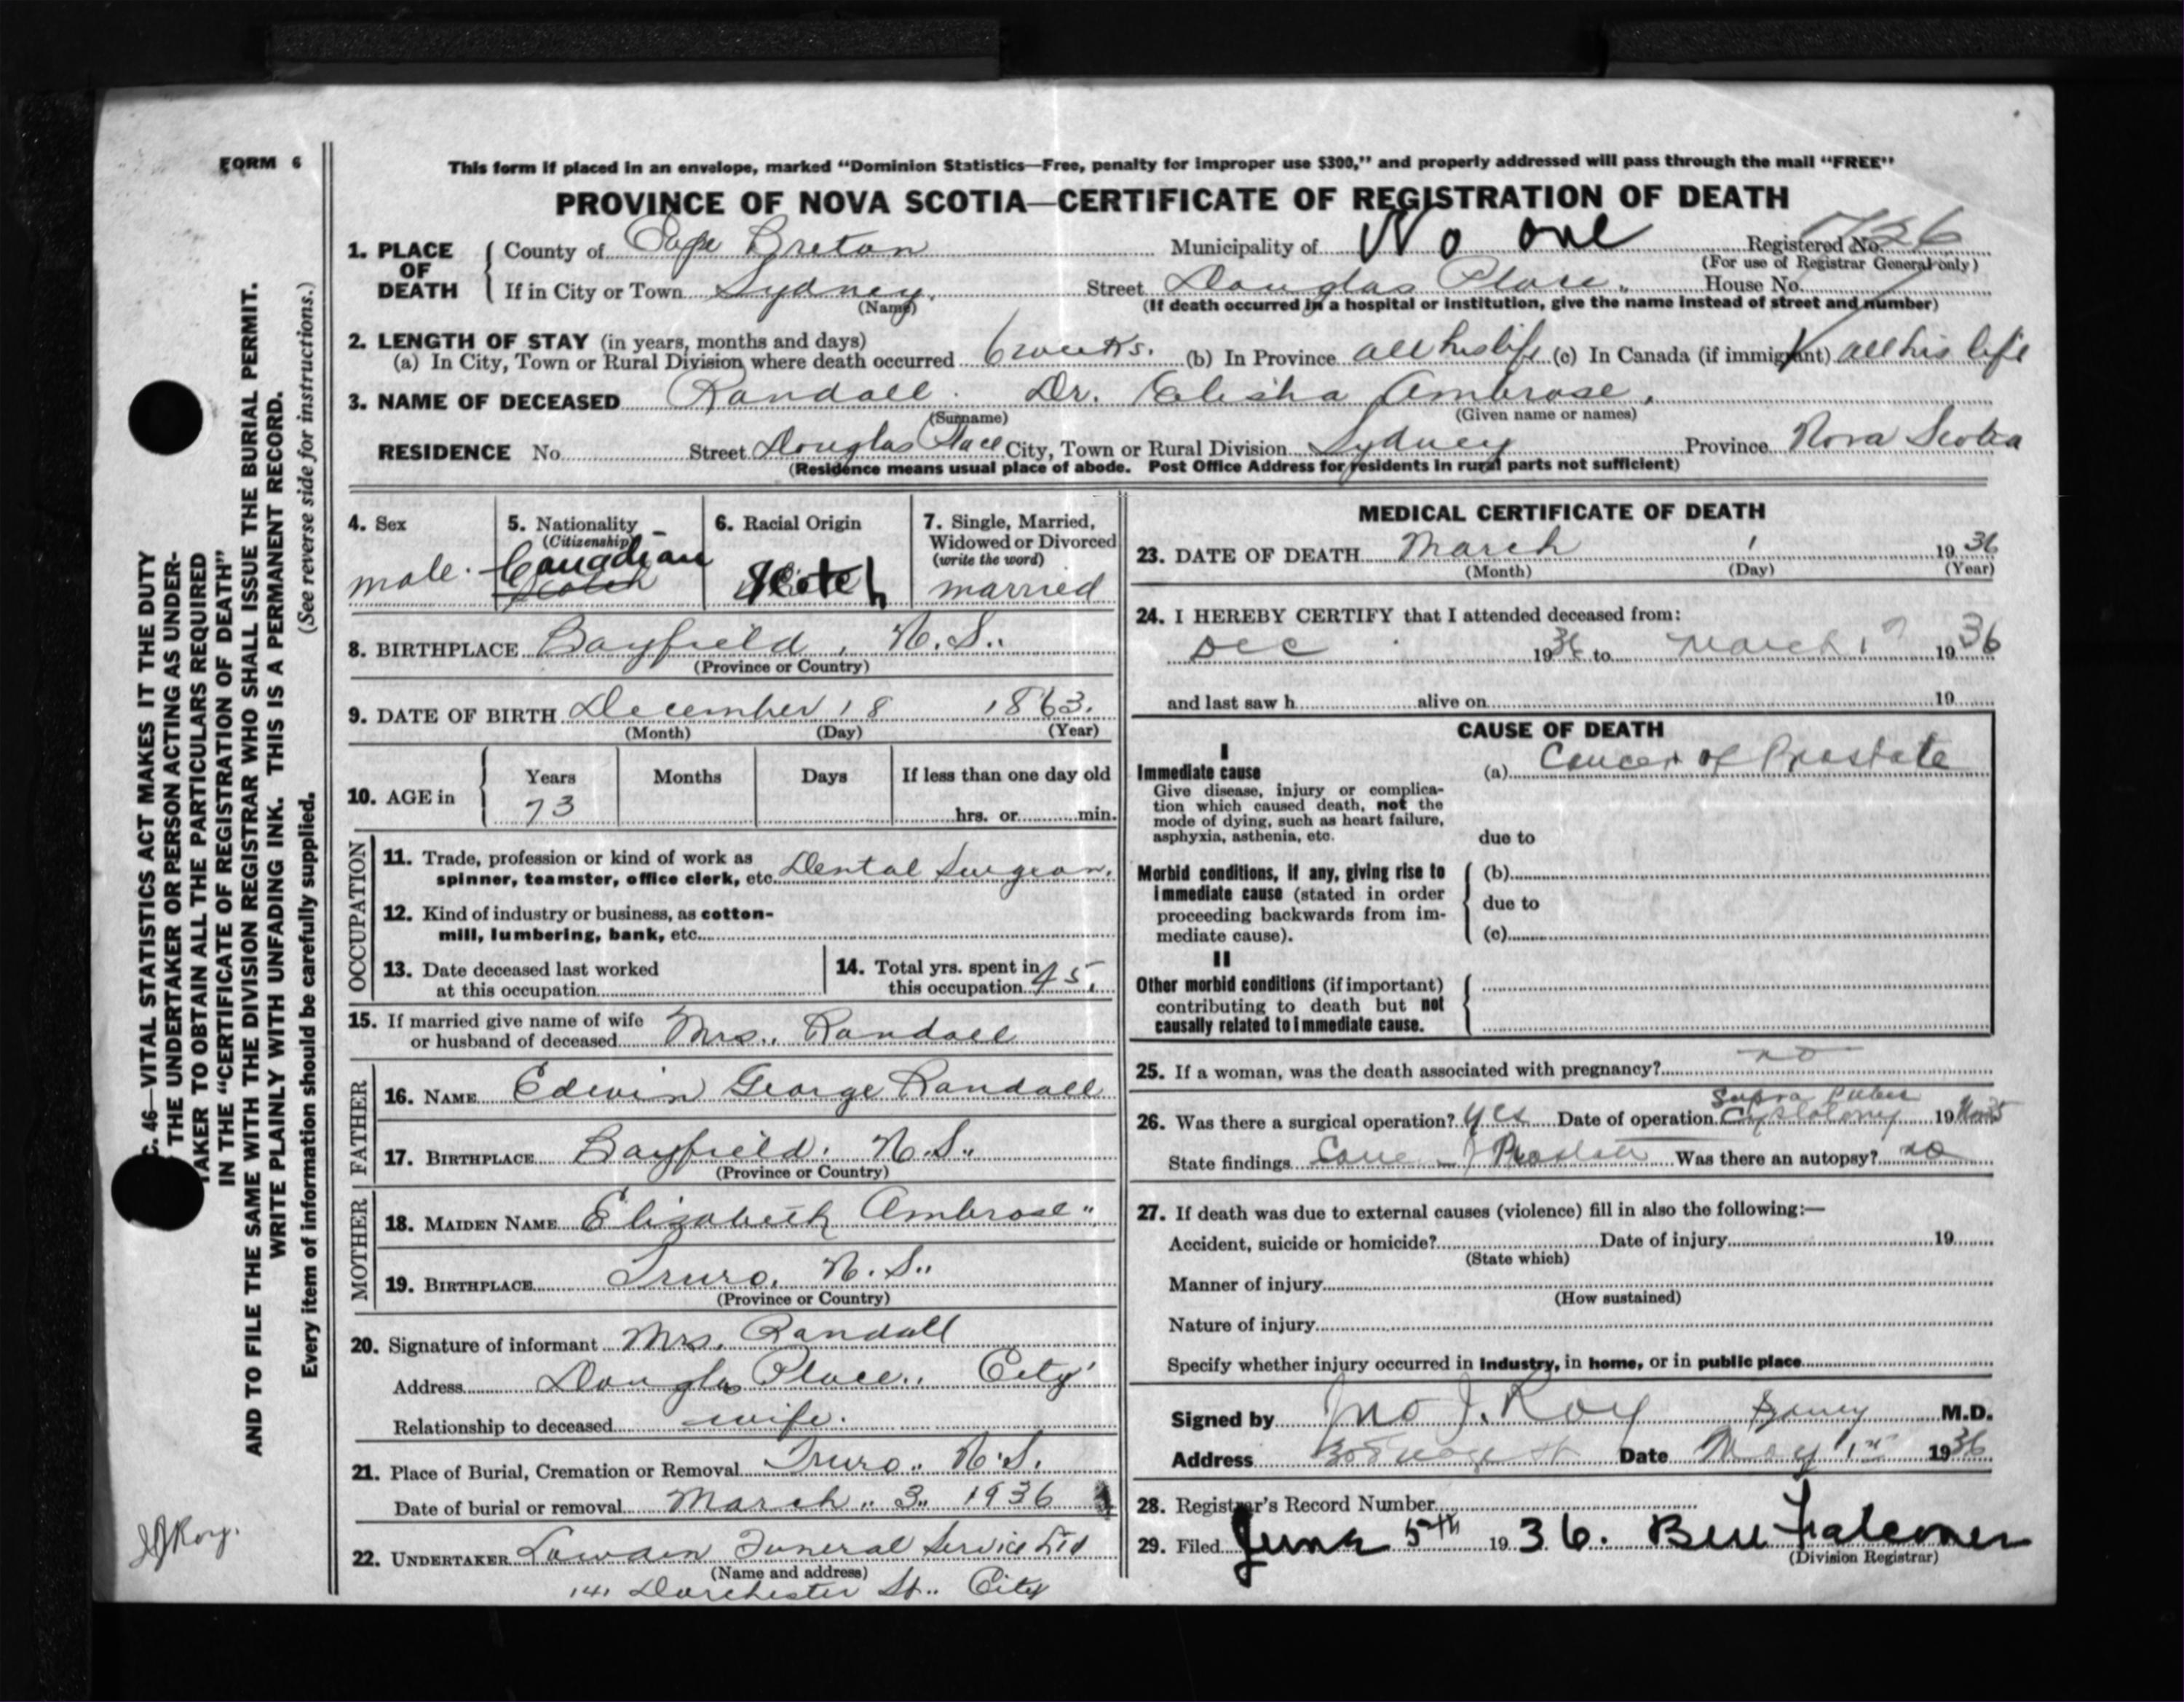 FORM 6
This form if placed in an envelope, marked “Dominion Statistics—Free, penalty for improper use $300,” and properly addressed will pass through the mail “FREE”
PROVINCE OF NOVA SCOTIA—CERTIFICATE OF REGISTRATION OF DEATH
1. PLACE OF DEATH County of Cape Breton Municipality of No one Registered No. 1726
(For use of Registrar General only)
If in City or Town Sydney. Street Douglas Place. House No.
(Name) (If death occurred in a hospital or institution, give the name instead of street and number)
2. LENGTH OF STAY (in years, months and days)
(a) In City, Town or Rural Division where death occurred 6 weeks. (b) In Province all his life (c) In Canada (if immigrant) all his life
3. NAME OF DECEASED Randall. Dr. Elisha Ambrose.
(Surname) (Given name or names)
RESIDENCE No. Street Douglas Place City, Town or Rural Division Sydney Province Nova Scotia
(Residence means usual place of abode. Post Office Address for residents in rural parts not sufficient)
4. Sex
male.
5. Nationality
(Citizenship)
Canadian
Scotch
6. Racial Origin
Scotch
7. Single, Married, Widowed or Divorced
(write the word)
married
8. BIRTHPLACE Bayfield, N.S..
(Province or Country)
9. DATE OF BIRTH December 18 1863.
(Month) (Day) (Year)
10. AGE in Years Months Days If less than one day old
73 hrs. or min.
OCCUPATION
11. Trade, profession or kind of work as
spinner, teamster, office clerk, etc. Dental Surgeon.
12. Kind of industry or business, as cotton-
mill, lumbering, bank, etc.
13. Date deceased last worked
at this occupation
14. Total yrs. spent in
this occupation 45.
15. If married give name of wife
or husband of deceased Mrs. Randall
FATHER
16. NAME Edwin George Randall
17. BIRTHPLACE Bayfield. N.S..
(Province or Country)
MOTHER
18. MAIDEN NAME Elizabeth Ambrose..
19. BIRTHPLACE Truro. N.S..
(Province or Country)
20. Signature of informant Mrs. Randall
Address Douglas Place.. City
Relationship to deceased wife.
21. Place of Burial, Cremation or Removal Truro.. N.S.
Date of burial or removal March.. 3.. 1936
22. UNDERTAKER Funeral Service Ltd
(Name and address)
141 Dorchester St.. City
MEDICAL CERTIFICATE OF DEATH
23. DATE OF DEATH March 1 1936
(Month) (Day) (Year)
24. I HEREBY CERTIFY that I attended deceased from:
Dec 19 to March 1 1936
and last saw h alive on 19
CAUSE OF DEATH
I
Immediate cause (a) Cancer of Prostate
Give disease, injury or complica-
tion which caused death, not the
mode of dying, such as heart failure,
asphyxia, asthenia, etc. due to
Morbid conditions, if any, giving rise to (b)
immediate cause (stated in order
proceeding backwards from im- due to
mediate cause). (c)
II
Other morbid conditions (if important)
contributing to death but not
causally related to immediate cause.
25. If a woman, was the death associated with pregnancy? no
26. Was there a surgical operation? yes Date of operation Supra Pubic Cystotomy 19
State findings Prostate Was there an autopsy? no
27. If death was due to external causes (violence) fill in also the following:—
Accident, suicide or homicide? Date of injury 19
(State which)
Manner of injury
(How sustained)
Nature of injury
Specify whether injury occurred in industry, in home, or in public place
Signed by Jno J. Roy Sydney M.D.
Address Date May 1st 1936
28. Registrar's Record Number
29. Filed June 5th 1936. Falconer
(Division Registrar)
C. 46—VITAL STATISTICS ACT MAKES IT THE DUTY
THE UNDERTAKER OR PERSON ACTING AS UNDER-
TAKER TO OBTAIN ALL THE PARTICULARS REQUIRED
IN THE “CERTIFICATE OF REGISTRATION OF DEATH”
AND TO FILE THE SAME WITH THE DIVISION REGISTRAR WHO SHALL ISSUE THE BURIAL PERMIT.
WRITE PLAINLY WITH UNFADING INK. THIS IS A PERMANENT RECORD.
Every item of information should be carefully supplied. (See reverse side for instructions.)
JJRoy.